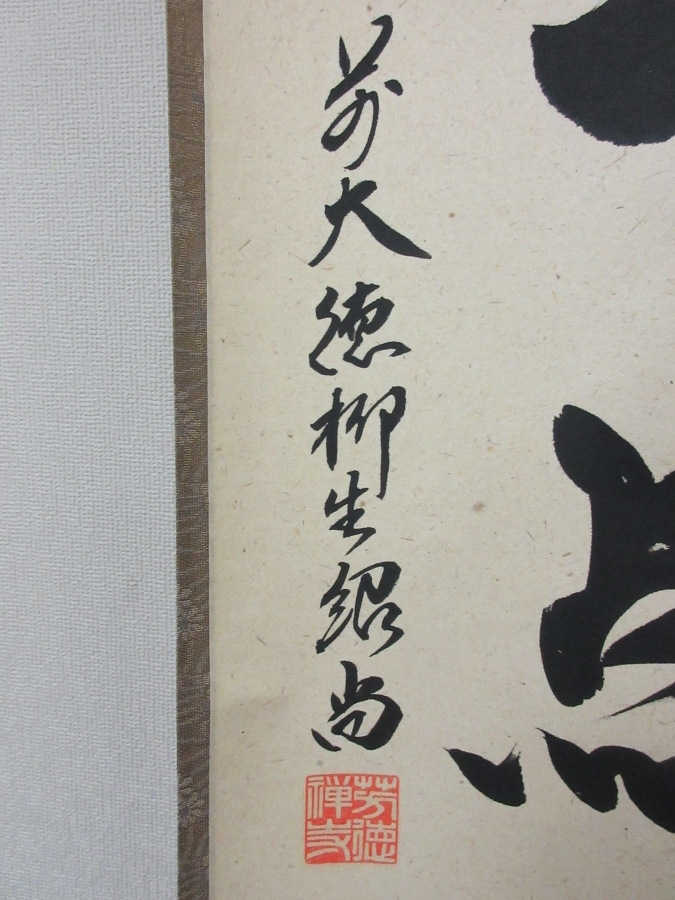 前大徳柳生紹尚
芳徳
禅寺